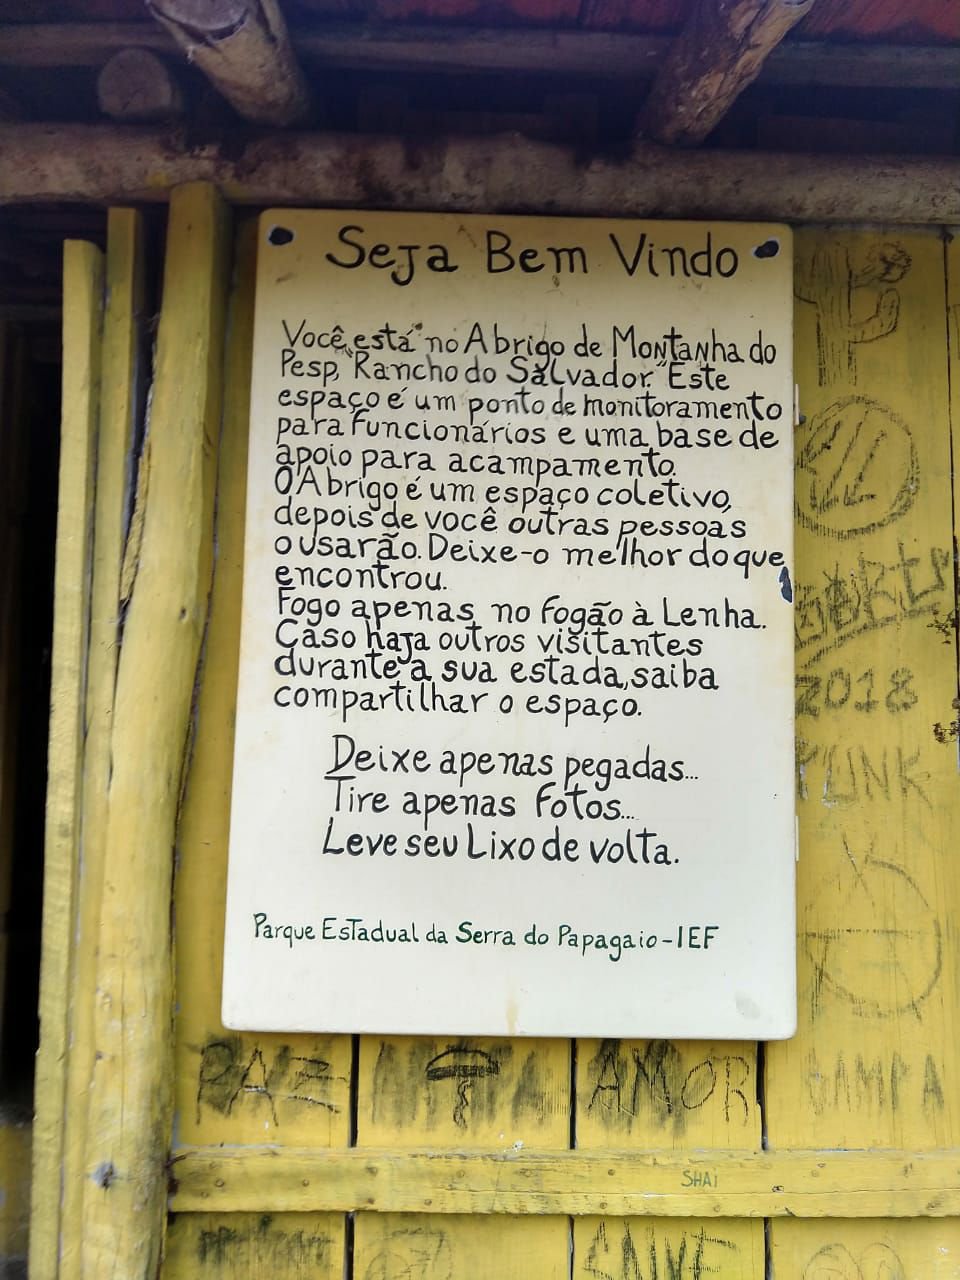 Seja Bem Vindo
Você está no Abrigo de Montanha do
Pesp, "Rancho do Salvador." Este
espaço é um ponto de monitoramento
para funcionários e uma base de
apoio para acampamento.
O Abrigo é um espaço coletivo,
depois de você outras pessoas
o usarão. Deixe-o melhor do que
encontrou.
Fogo apenas no fogão à Lenha.
Caso haja outros visitantes
durante a sua estada, saiba
compartilhar o espaço.
Deixe apenas pegadas...
Tire apenas fotos...
Leve seu Lixo de volta.
Parque Estadual da Serra do Papagaio - IEF
2018
PUNK
PAZ
AMOR
SAMPA
SHAI